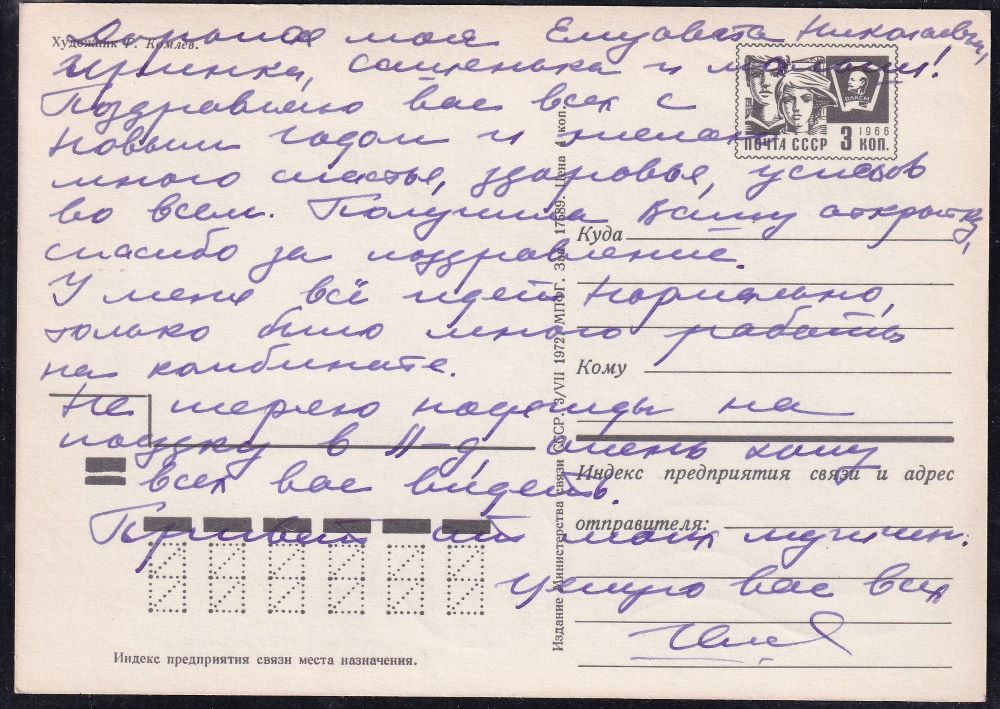 Художник Г. Комлев.
Дорогие мои Елизавета Николаевна,
Иринка, Сашенька и малыш!
Поздравляю вас всех с
Новым годом и желаю
много счастья, здоровья, успехов
во всем. Получила Вашу открытку,
спасибо за поздравление.
У меня всё идет нормально,
только было много работы
на комбинате.
Не теряю надежды на
поездку в Л-д очень хочу
всех вас видеть.
Привет от моих мужчин.
Целую вас всех
ВЛКСМ
1966
ПОЧТА СССР 3 КОП.
Куда
Кому
Индекс предприятия связи и адрес
отправителя:
Издание Министерства связи СССР. 3/VII 1972 МПФГ. Зак. 17689. Цена 4 коп.
Индекс предприятия связи места назначения.